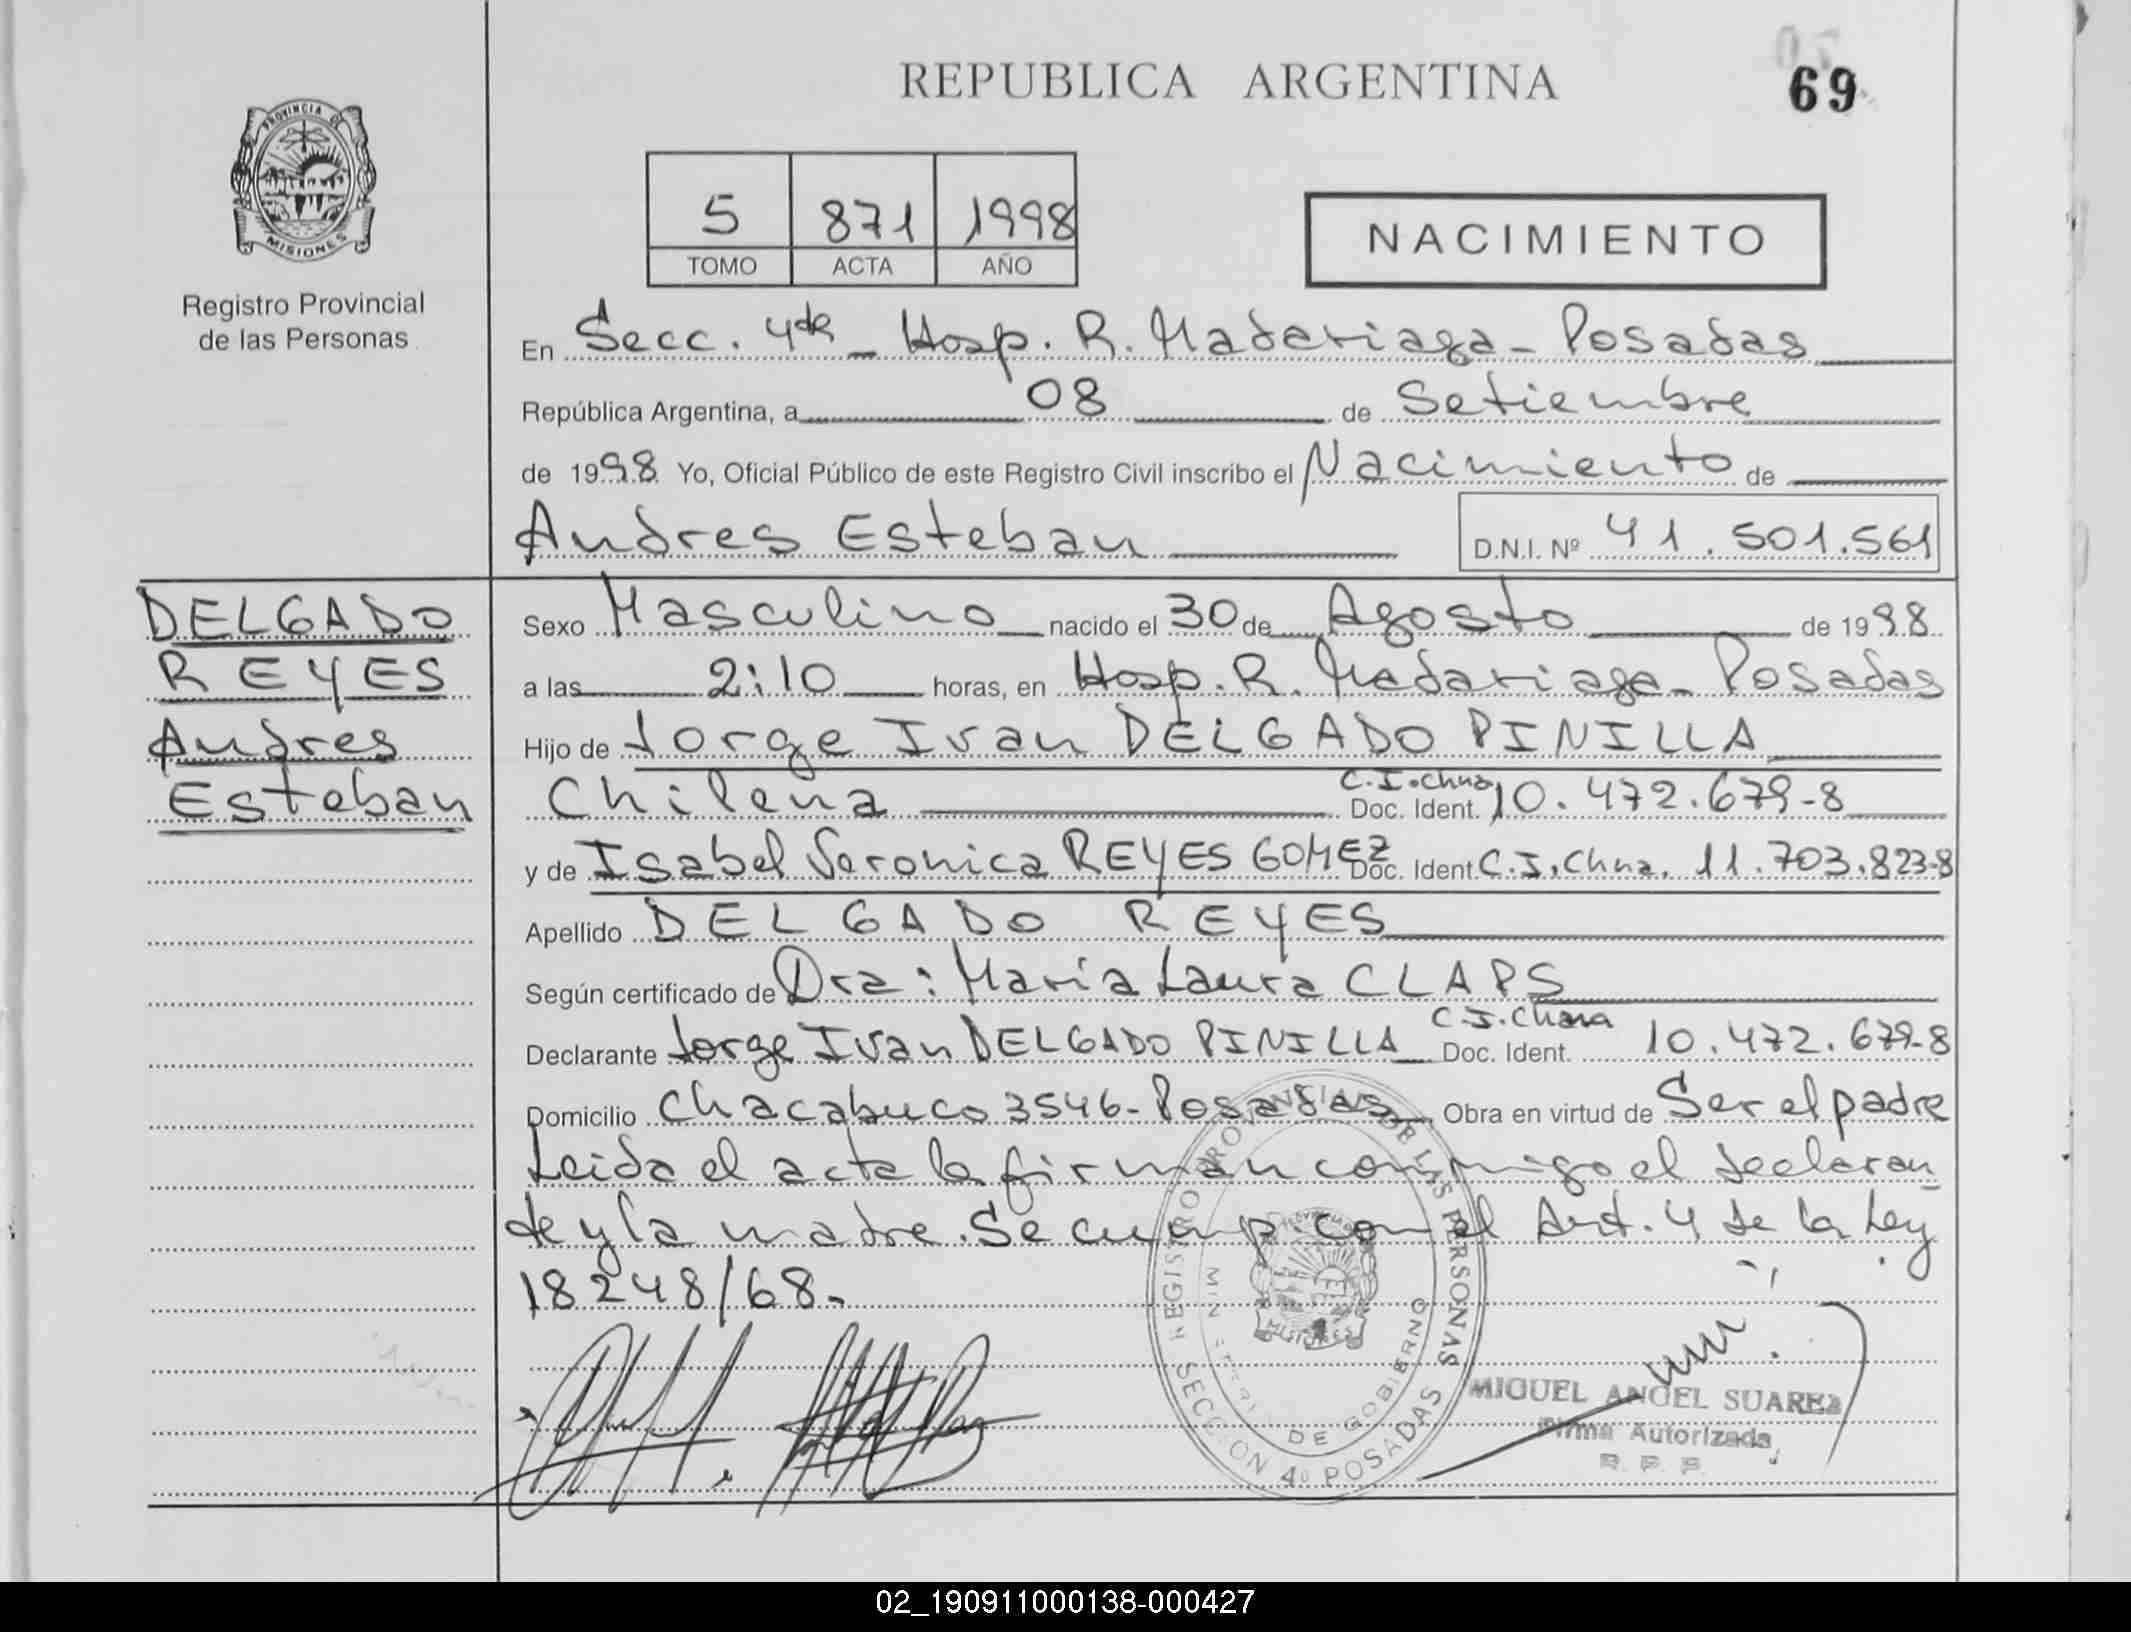 REPUBLICA ARGENTINA
69
PROVINCIA DE
MISIONES
Registro Provincial
de las Personas
5 871 1998
TOMO ACTA AÑO
NACIMIENTO
En Secc. 4ta - Hosp. R. Madariaga - Posadas
República Argentina, a 08 de Setiembre
de 1998 Yo, Oficial Público de este Registro Civil inscribo el Nacimiento de
Andres Esteban D.N.I. Nº 41.501.561
DELGADO
REYES
Andres
Esteban
Sexo Masculino nacido el 30 de Agosto de 1998
a las 2:10 horas, en Hosp. R. Madariaga - Posadas
Hijo de Jorge Ivan DELGADO PINILLA
Chilena C.I. Chna Doc. Ident. 10.472.679-8
y de Isabel Veronica REYES GOMEZ Doc. Ident. C.I. Chna. 11.703.823-8
Apellido DELGADO REYES
Según certificado de Dra: Maria Laura CLAPS
Declarante Jorge Ivan DELGADO PINILLA C.I. Chna Doc. Ident. 10.472.679-8
Domicilio Chacabuco 3546 - Posadas Obra en virtud de Ser el padre
Leida el acta la firman conmigo el declaran
te y la madre. Se cump. con el Art. 4 de la Ley
18248/68.-
REGISTRO PROVINCIAL DE LAS PERSONAS
MINISTERIO DE GOBIERNO
SECCION 4º POSADAS
MISIONES
MIGUEL ANGEL SUAREZ
Firma Autorizada
R. P. P.
02_190911000138-000427